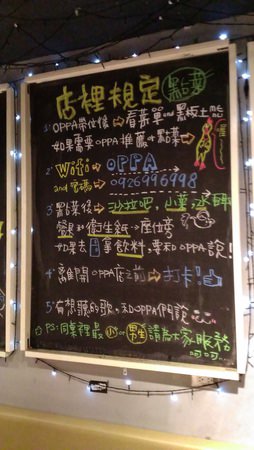 店裡規定 點菜
1. OPPA帶位後⇒看菜單and黑板土能
如果需要OPPA推薦+點菜
2. Wifi⇒OPPA
and 密碼⇒0926996998
3. 點菜後⇒沙拉吧,小菜,冰
餐具和衛生紙→座位旁
如果去拿飲料,要和OPPA說!
4. 離開OPPA店之前→打卡
5. 有想聽的歌,和OPPA們說
☆PS:同桌裡最小or男生請為大家服務
呵呵..